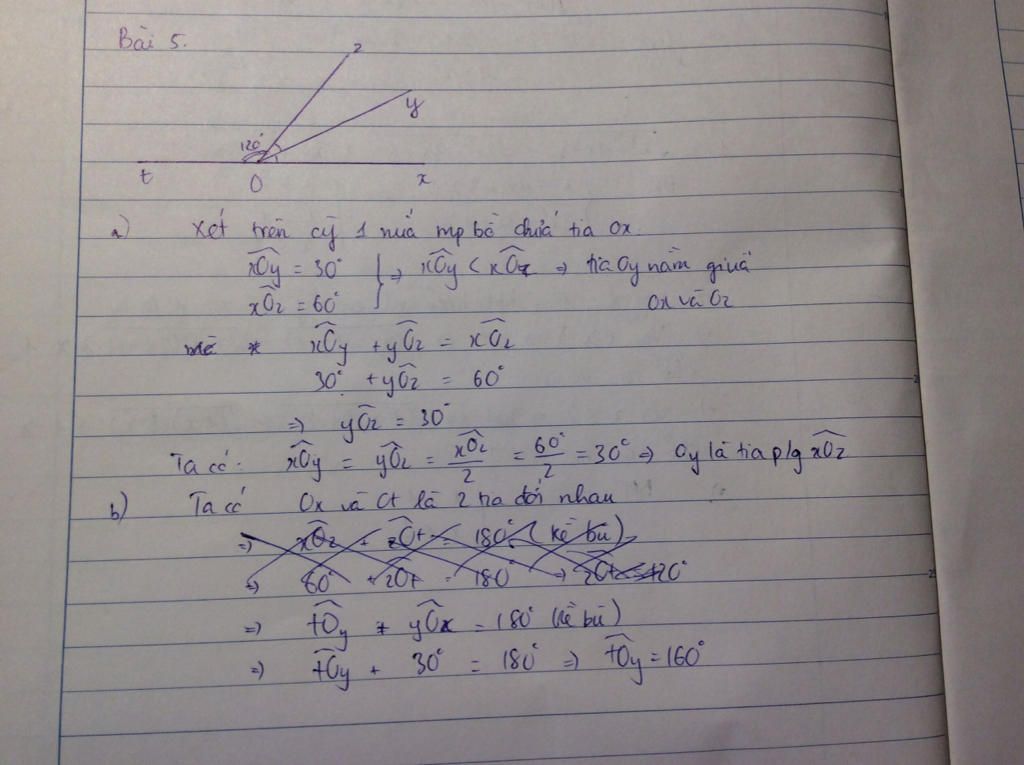 Bài 5.
z
y
120°
t O x
a) Xét trên cg 1 nửa mp bờ chứa tia Ox.
xOy = 30° } ⇒ xOy < xOz ⇒ tia Oy nằm giữa
xOz = 60° Ox và Oz
* xOy + yOz = xOz
30° + yOz = 60°
⇒ yOz = 30°
Ta có: xOy = yOz = xOz/2 = 60°/2 = 30° ⇒ Oy là tia p/g xOz
b) Ta có Ox và Ot là 2 tia đối nhau
⇒ xOz + zOt = 180° (kề bù)
⇒ 60° + zOt = 180° ⇒ zOt = 120°
⇒ tOy + yOx = 180° (kề bù)
⇒ tOy + 30° = 180° ⇒ tOy = 160°